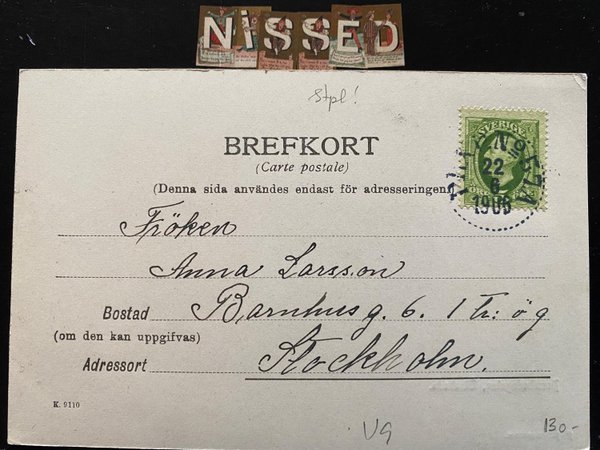 NiSSED
Stpl!
BREFKORT
(Carte postale)
(Denna sida användes endast för adresseringen)
SVERIGE
22
6
1906
Fröken
Anna Larsson
Bostad Barnhusg. 6. 1 Tr: ög
(om den kan uppgifvas)
Adressort Stockholm.
K. 9110
VG
130-